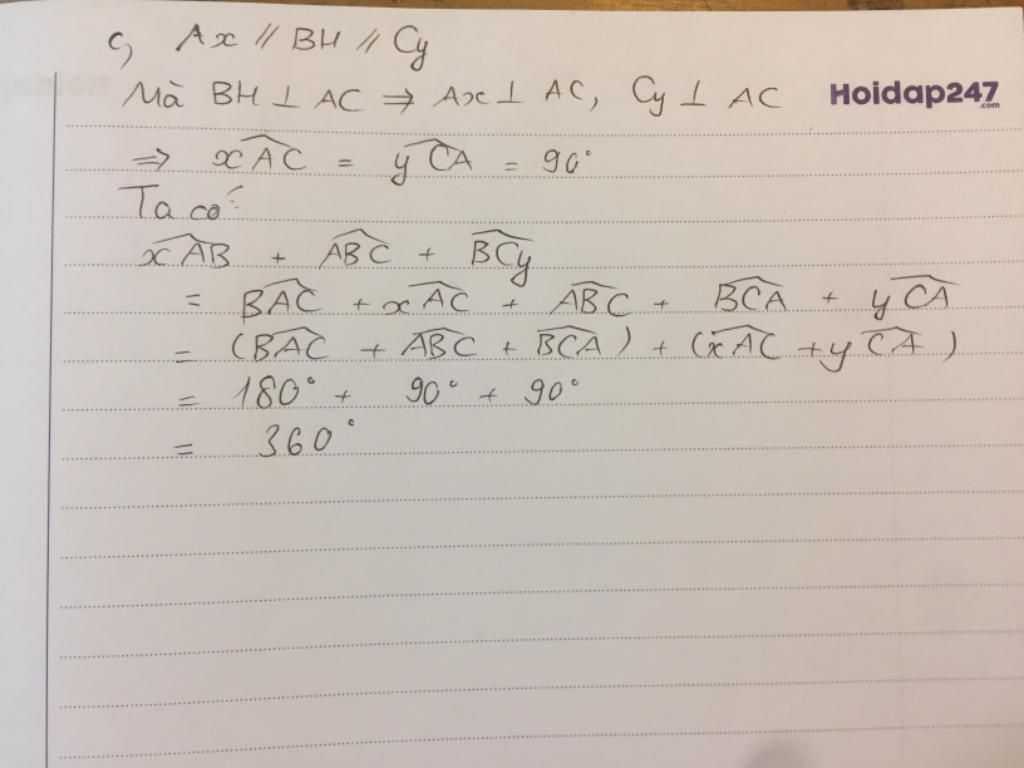 c, Ax // BH // Cy
Mà BH ⊥ AC ⇒ Ax ⊥ AC, Cy ⊥ AC
Hoidap247
.com
⇒ \widehat{xAC} = \widehat{yCA} = 90°
Ta có:
\widehat{xAB} + \widehat{ABC} + \widehat{BCy}
= \widehat{BAC} + \widehat{xAC} + \widehat{ABC} + \widehat{BCA} + \widehat{yCA}
= (\widehat{BAC} + \widehat{ABC} + \widehat{BCA}) + (\widehat{xAC} + \widehat{yCA})
= 180° + 90° + 90°
= 360°